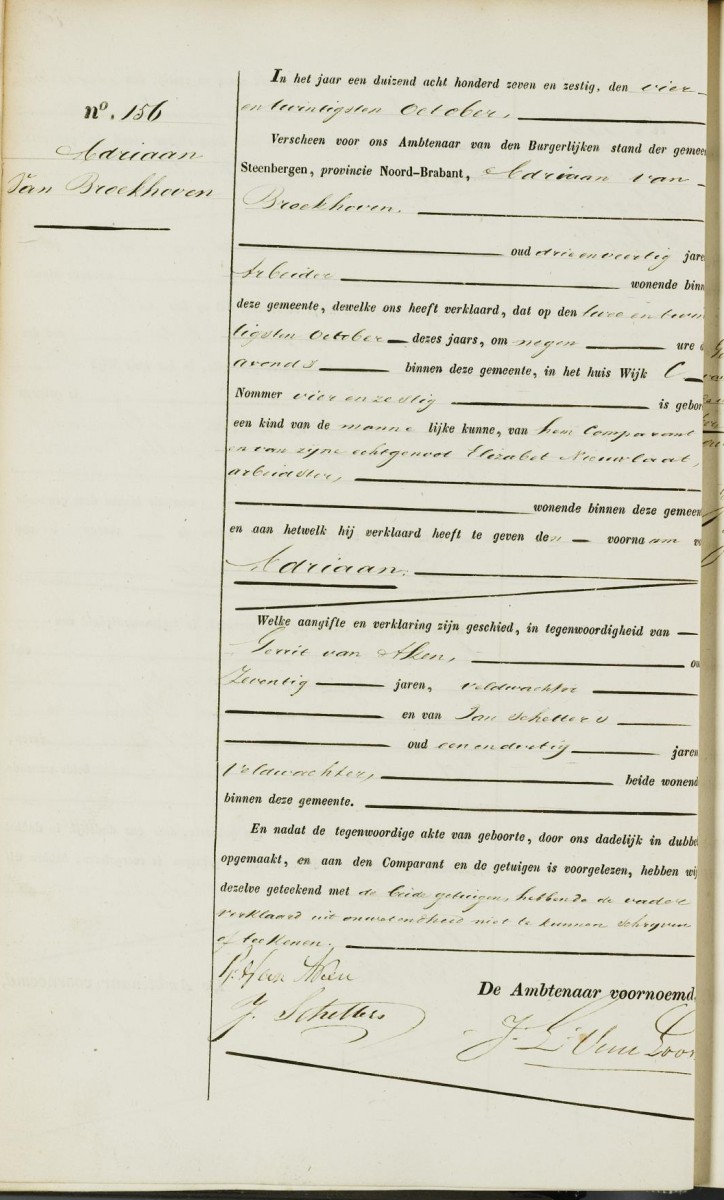 nº. 156
Adriaan
Van Broekhoven
In het jaar een duizend acht honderd zeven en zestig, den vier-
en twintigsten October,
Verscheen voor ons Ambtenaar van den Burgerlijken stand der gemee
Steenbergen, provincie Noord-Brabant, Adriaan van
Broekhoven.
oud drie en veertig jare
Arbeider wonende binn
deze gemeente, dewelke ons heeft verklaard, dat op den twee en twin
tigsten October dezes jaars, om negen ure
avonds binnen deze gemeente, in het huis Wijk C
Nommer vier en zestig is gebor
een kind van de manne lijke kunne, van hem Comparant
en van zijne echtgenoot Elizabet Nieuwlaat,
arbeidster,
wonende binnen deze gemeen
en aan hetwelk hij verklaard heeft te geven den voornaam v
Adriaan.
Welke aangifte en verklaring zijn geschied, in tegenwoordigheid van
Gerrit van Aken, ou
Zeventig jaren, veldwachter
en van Jan Schetters
oud een en dertig jaren
veldwachter, beide wonend
binnen deze gemeente.
En nadat de tegenwoordige akte van geboorte, door ons dadelijk in dubbel
opgemaakt, en aan den Comparant en de getuigen is voorgelezen, hebben wij
dezelve geteekend met de beide getuigen, hebbende de vader
verklaard uit onwetendheid niet te kunnen schryven
of teekenen.
G. Van Aken
De Ambtenaar voornoemd,
J. Schetters
J. L. Van Loon